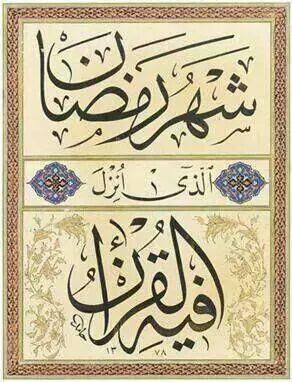 شَهْرُ رَمَضَانَ
الَّذِىٓ اُنْزِلَ
فِيهِ الْقُرْاٰنُ
١٣٧٨